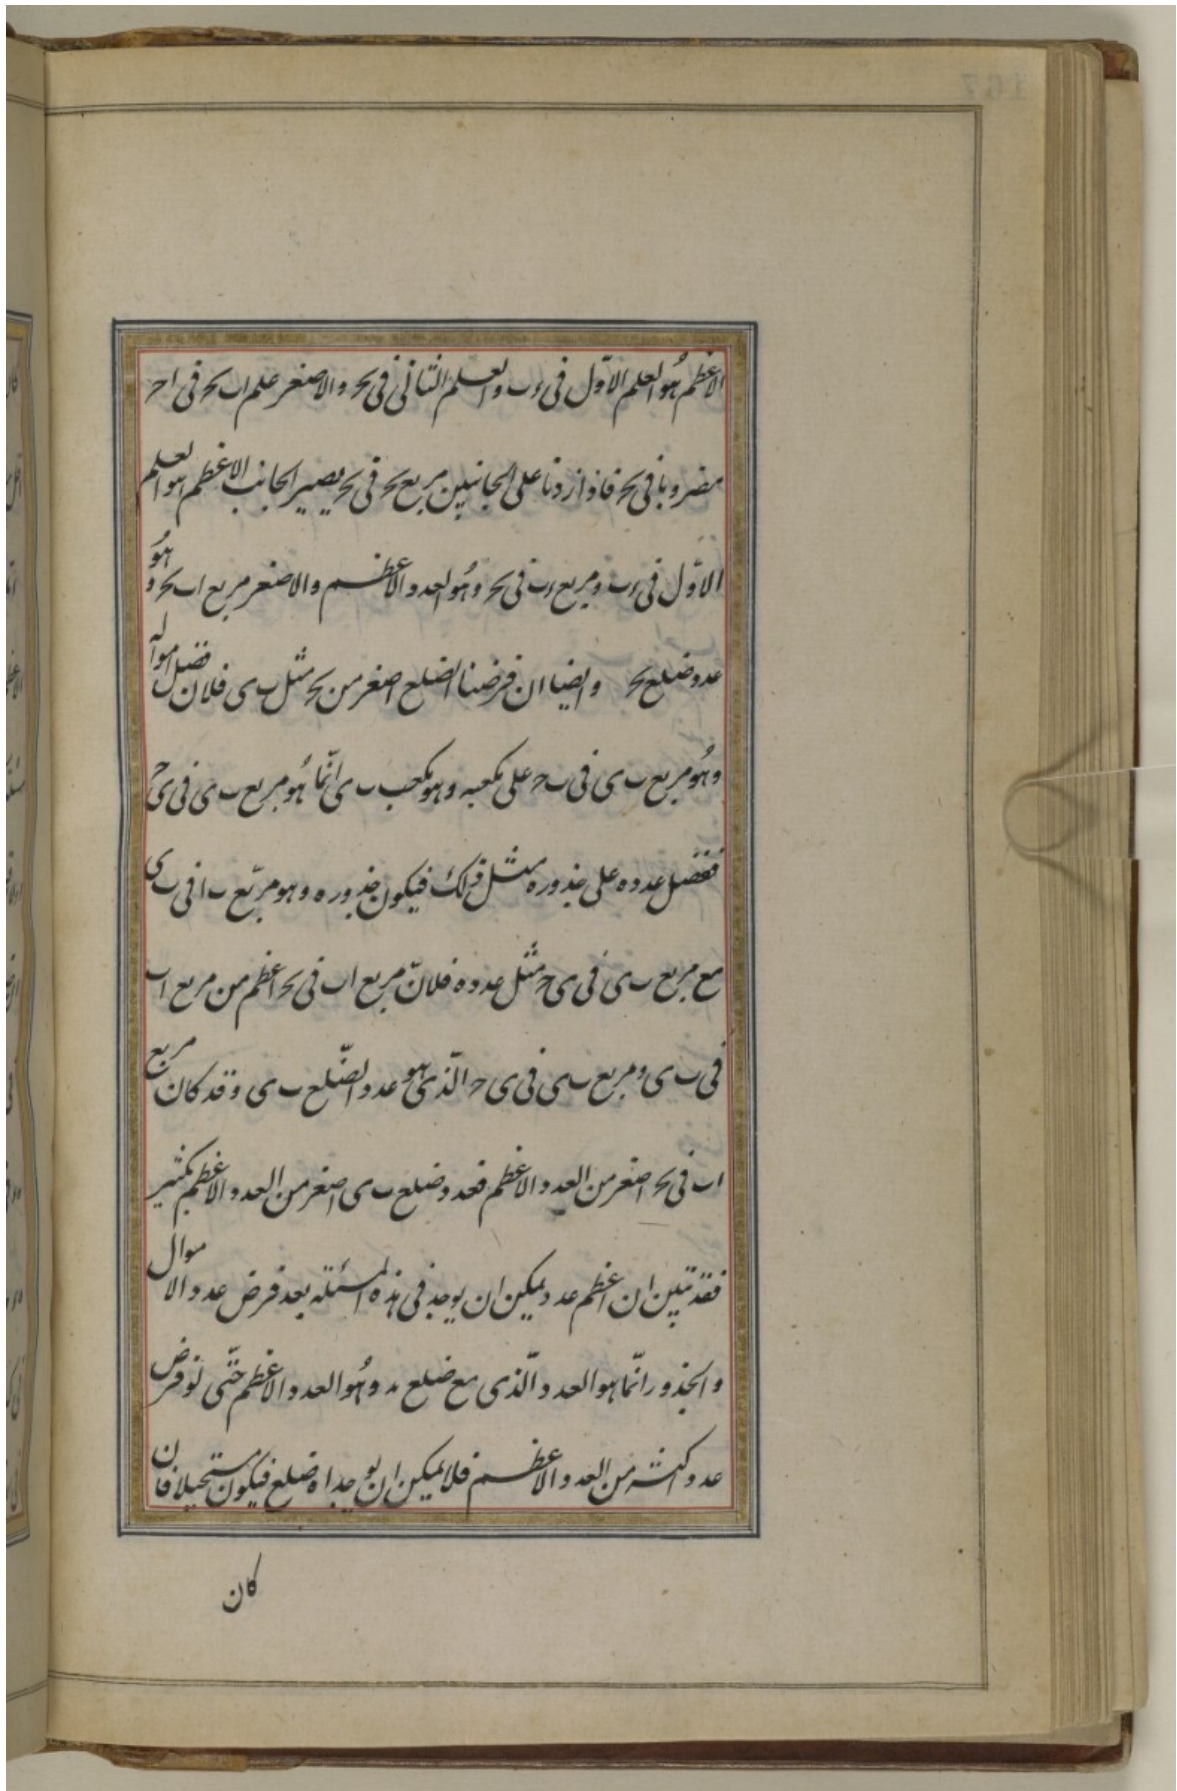 الاعظم هو العلم الاوّل فى ءب والعلم الثانى فى بحـ والاصغر علم اب بحـ فى احـ
مضروبا فى بحـ فاذا زدنا على الجانبين مربع بحـ فى بحـ يصير الجانب الاعظم هو العلم
الاوّل فى ءب ومربع ءب فى بحـ وهو العدد الاعظم والاصغر مربع اب بحـ وهو
عدد ضلع بحـ وايضا ان فرضنا الضلع اصغر من بحـ مثل ب ى فلان فضل امواله
وهو مربع ب ى فى ب حـ على مكعبه وهو مكعب ب ى انّما هو مربع ب ى فى ى حـ
ففضل عدده على جذوره مثل ذلك فيكون جذوره وهو مربّع ب ا فى ب ى
مع مربع ب ى فى ى حـ مثل عدده فلانّ مربع اب فى بحـ اعظم من مربع اب
فى ب ى ومربع ب ى فى ى حـ الّذى هو عدد الضّلع ب ى وقد كان مربع
اب فى بحـ اصغر من العدد الاعظم فعدد ضلع ب ى اصغر من العدد الاعظم بكثير
فقد تبين ان اعظم عدد يمكن ان يوجد فى هذه المسئلة بعد فرض عدد الاموال
والجذور انّما هو العدد الّذى مع ضلع وهو العدد الاعظم حتّى لو فرض
عدد اكثر من العدد الاعظم فلا يمكن ان يوجد له ضلع فيكون مستحيلا فان
كان